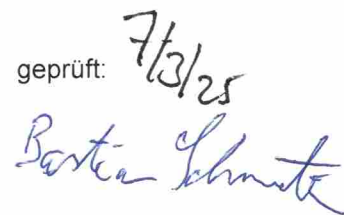 geprüft: 7/3/25
Bastian Schmitz